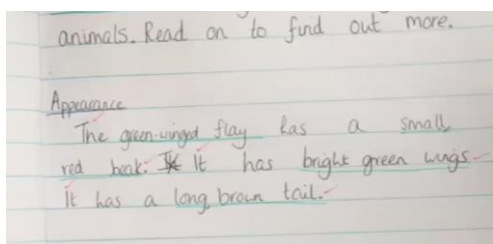 animals. Read on to find out more.
Appearance
The green-winged flay has a small
red beak. It has bright green wings
It has a long, brown tail.